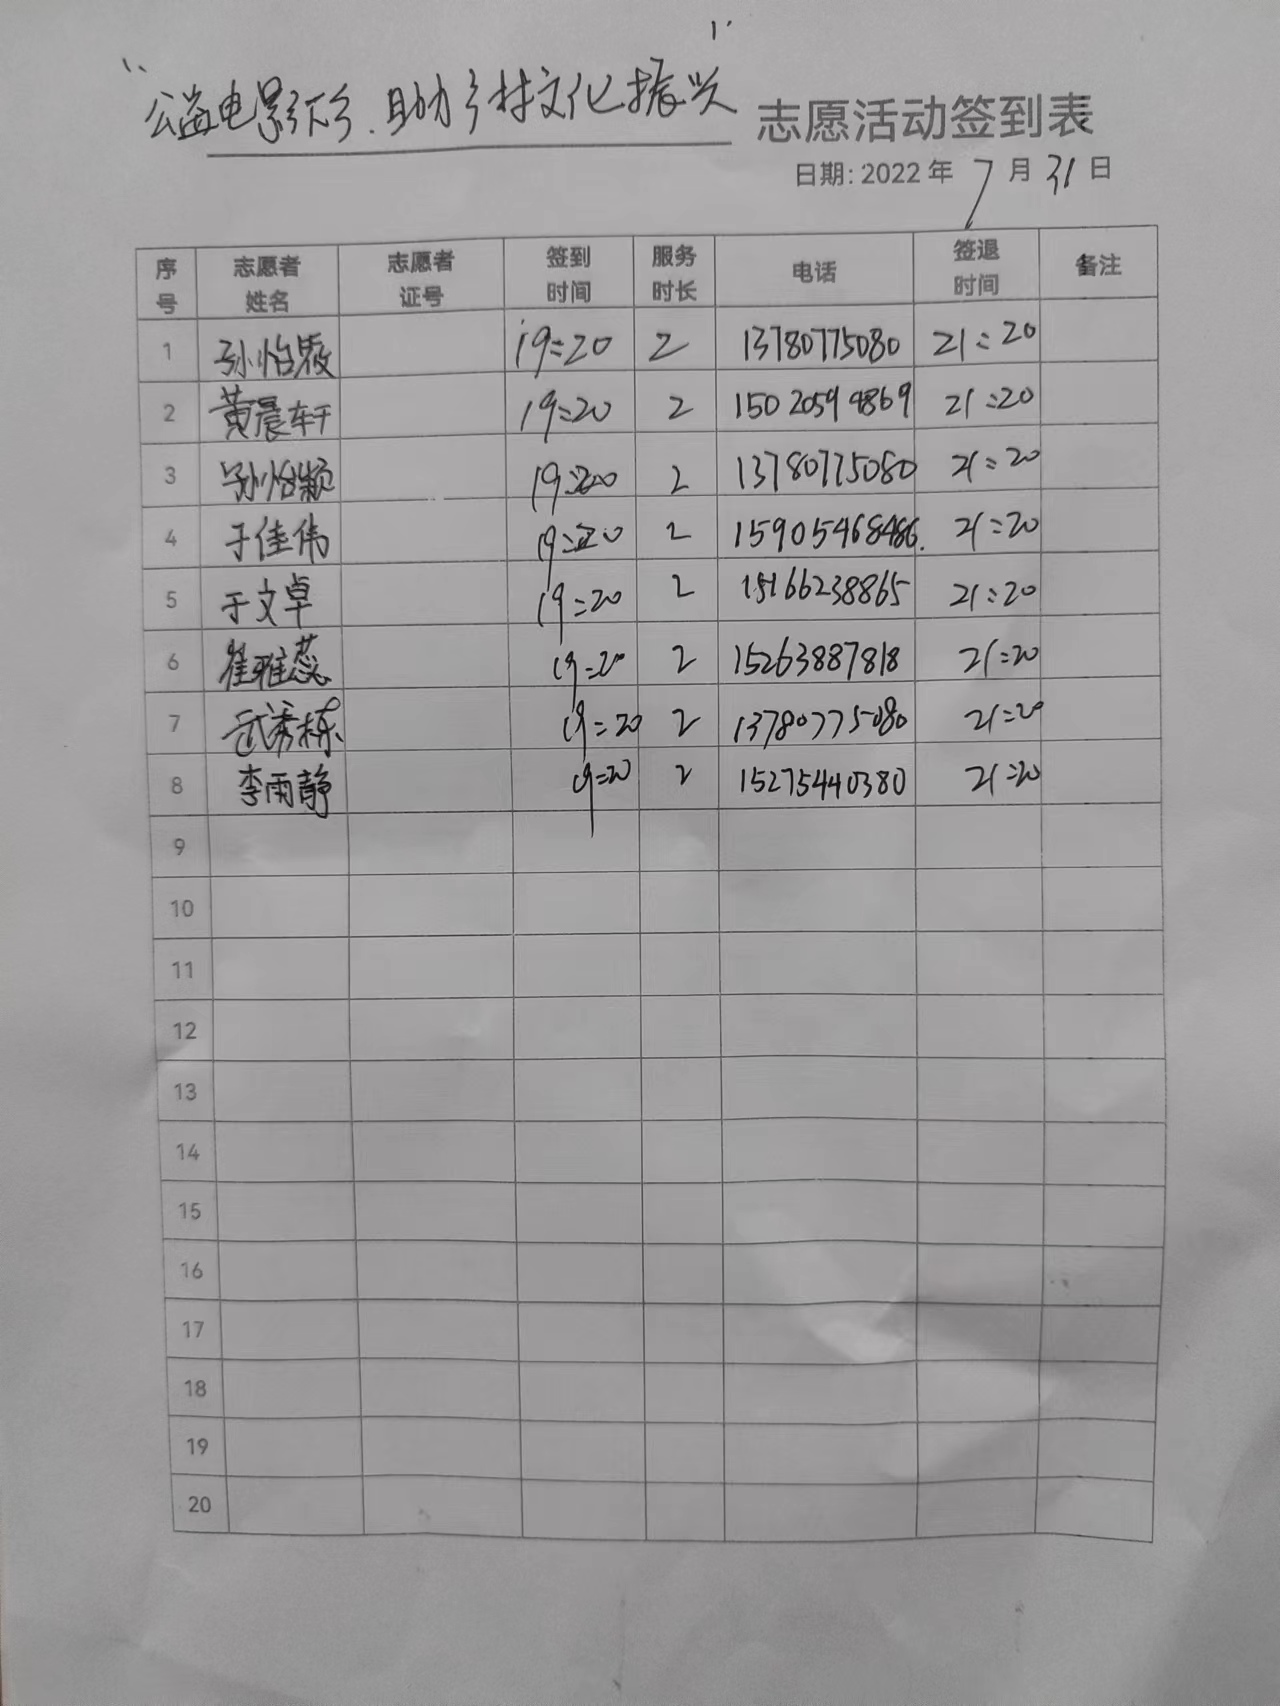 “公益电影下乡.助力乡村文化振兴” 志愿活动签到表
日期: 2022 年 7 月 31 日
序号 志愿者姓名 志愿者证号 签到时间 服务时长 电话 签退时间 备注
1 孙怡 19:20 2 13780775080 21:20
2 黄晨轩 19:20 2 15020594869 21:20
3 孙怡颖 19:20 2 13780775080 21:20
4 于佳伟 19:20 2 15905468486. 21:20
5 于文卓 19:20 2 15166238865 21:20
6 崔雅蕊 19:20 2 15263887818 21:20
7 武秀栋 19:20 2 13780775080 21:20
8 李雨静 19:20 2 15275440380 21:20
9
10
11
12
13
14
15
16
17
18
19
20